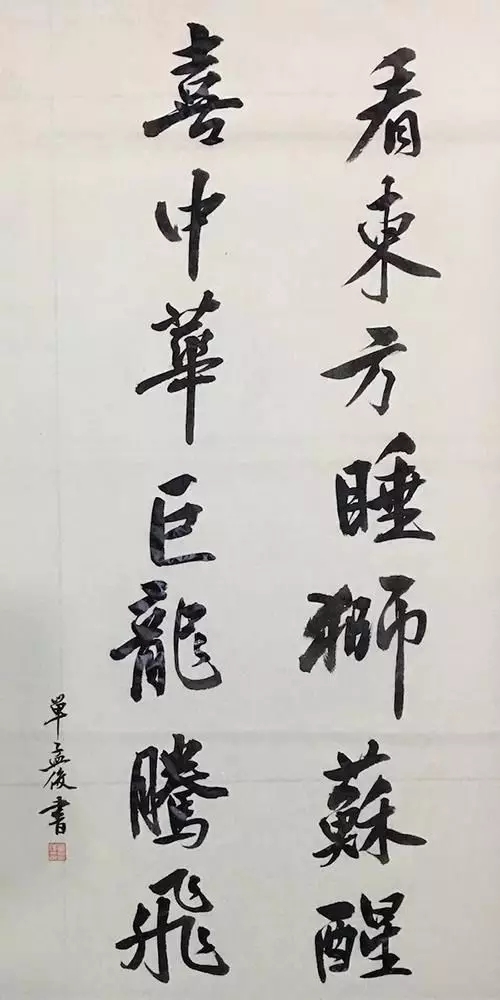 看東方睡獅蘇醒
喜中華巨龍騰飛
單孟俊書